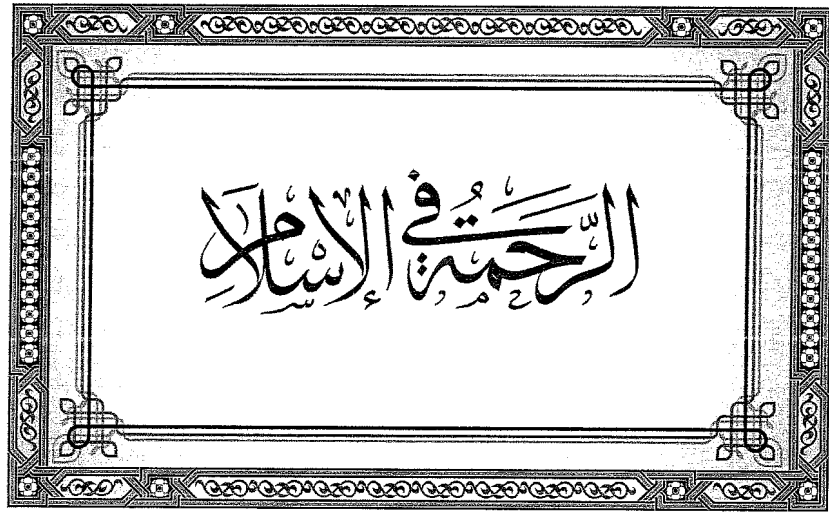 الرَّحمَةُ في الإسلامِ